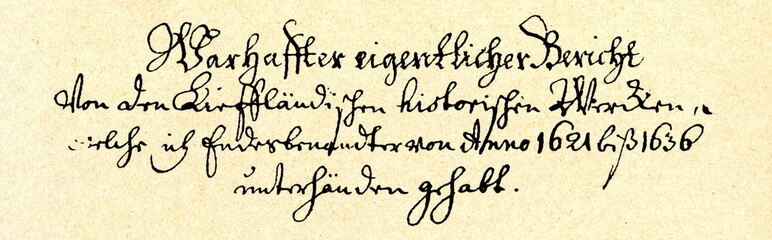 Warhaffter eigentlicher Bericht
Von den Lieffländischen historischen Wercken,
welche ich Endesbenandter von Anno 1621 biß 1636
unterhänden gehabt.